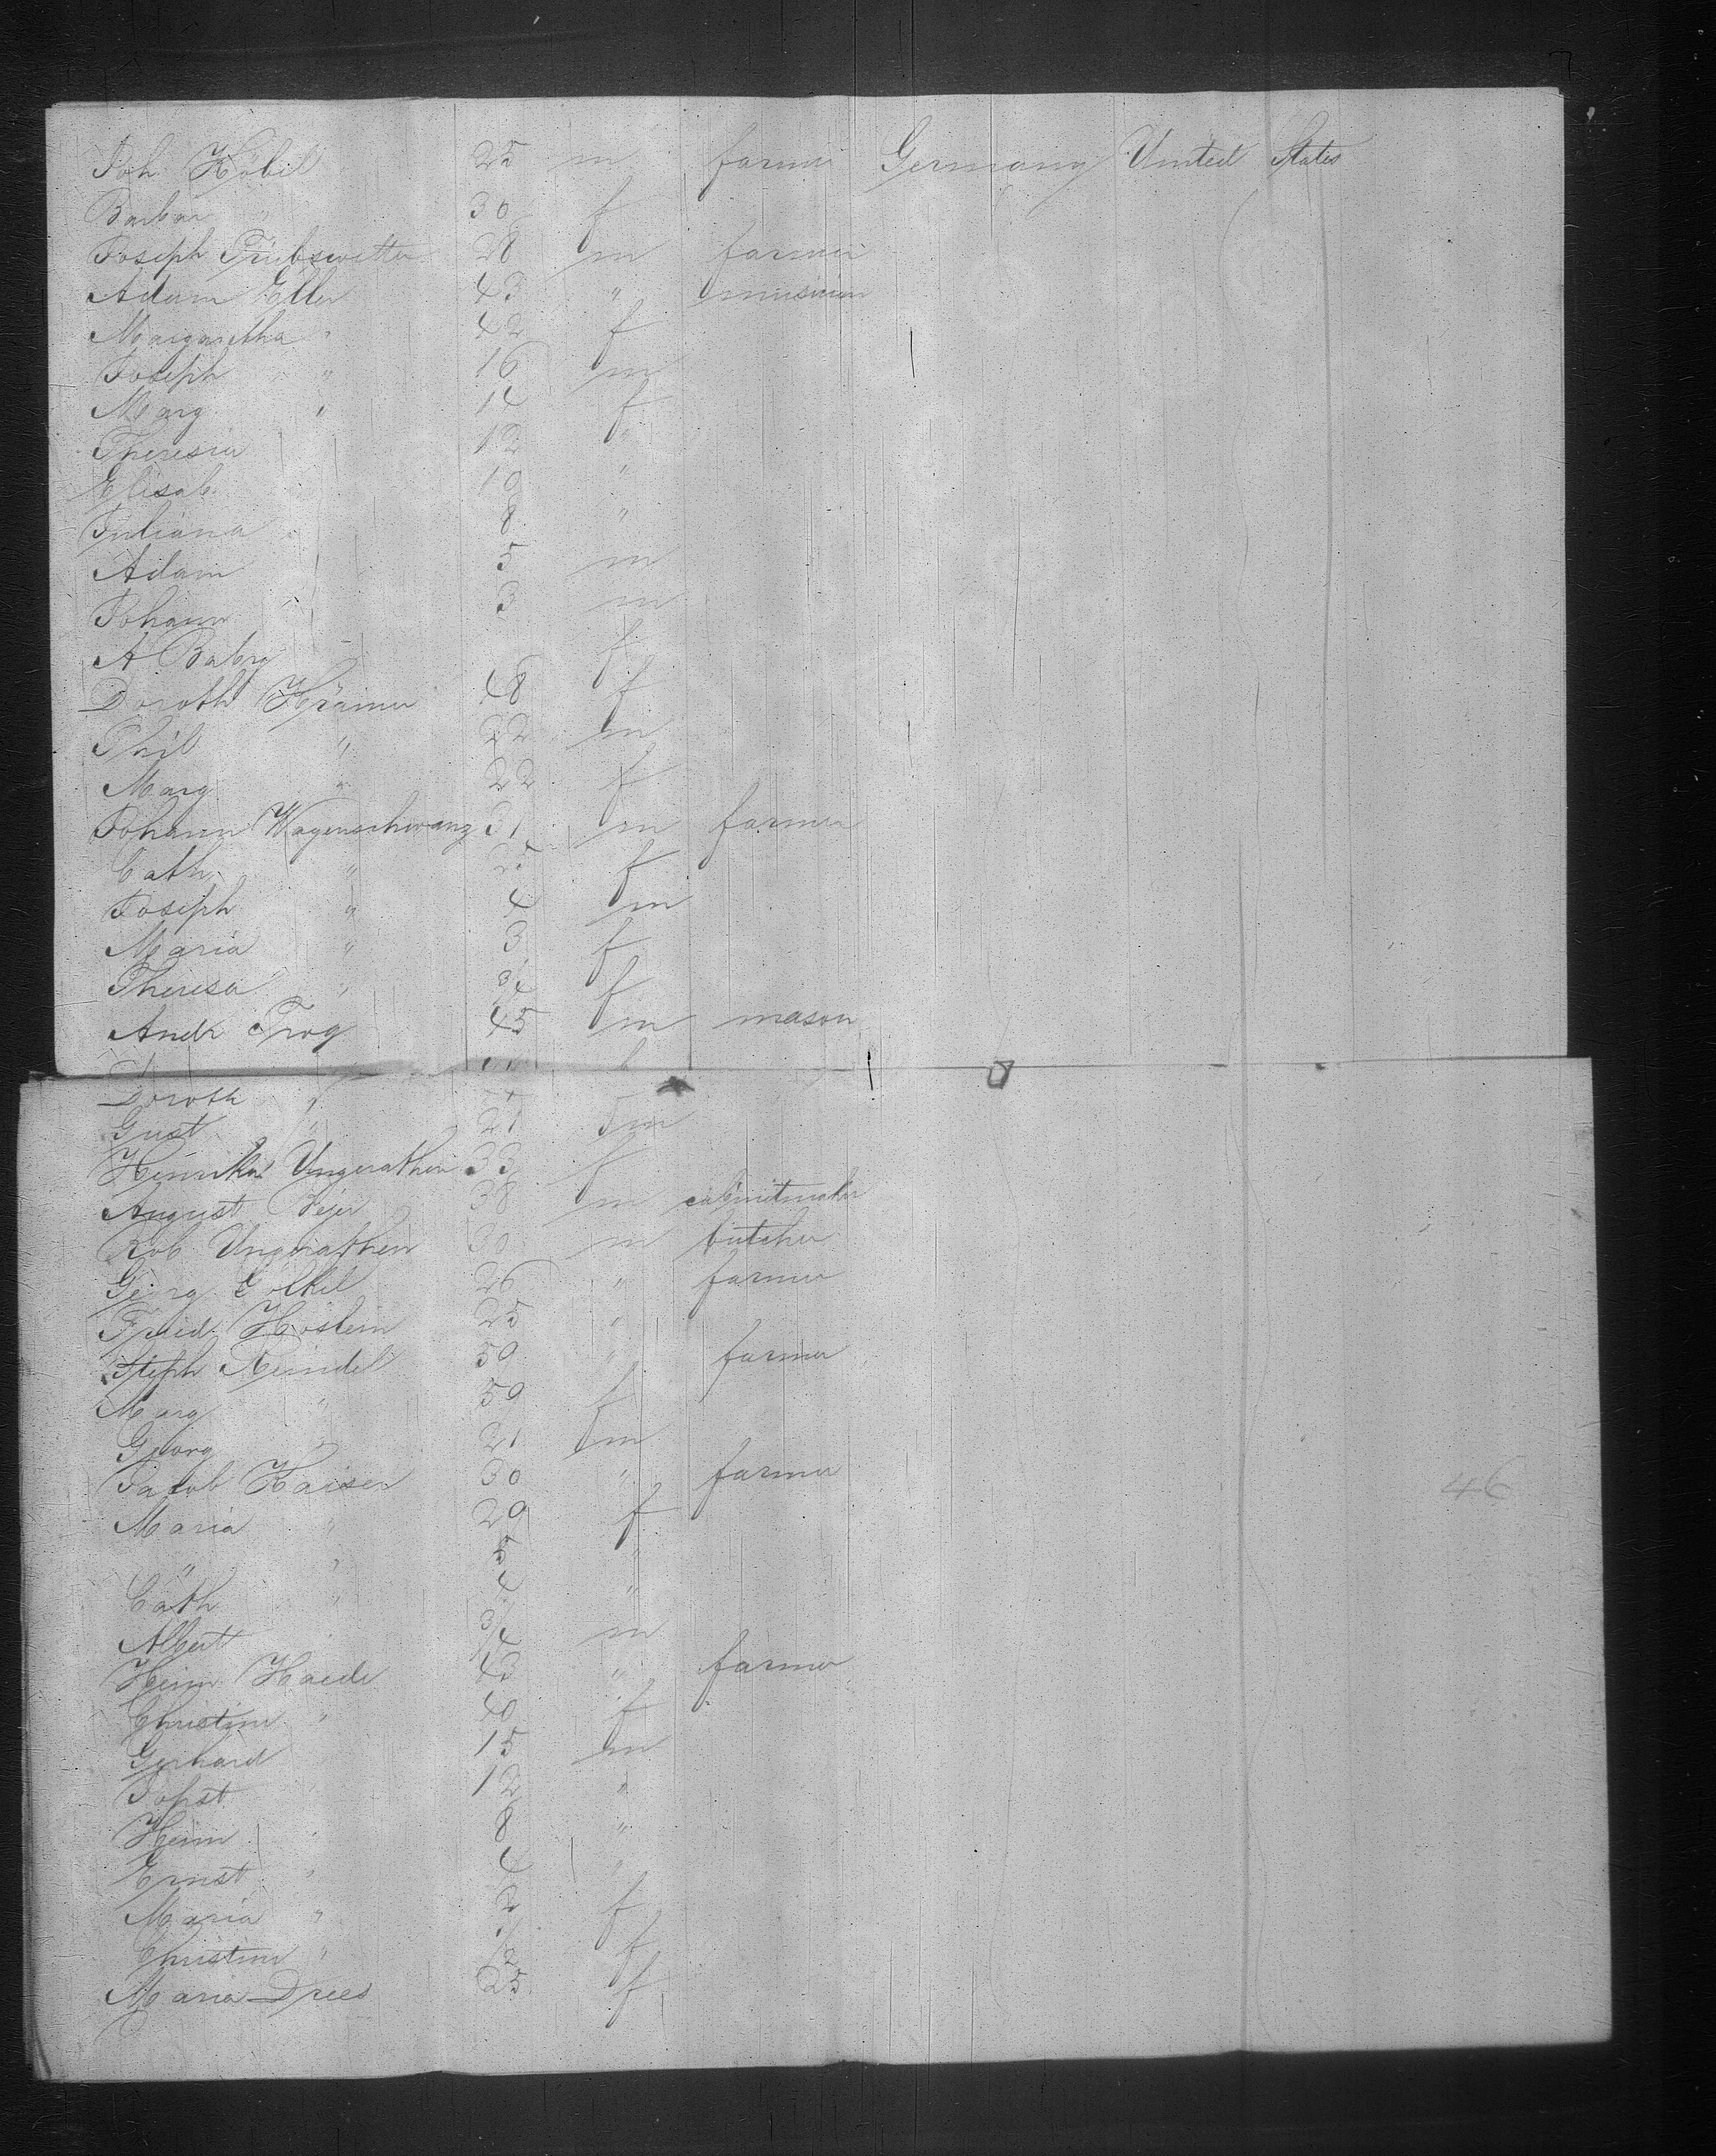 Joh Höbel 25 m farmer Germany United States
Barbar " 30 f
Joseph Trübswetter 28 m farmer
Adam Eller 43 " musician
Margaretha " 42 f
Joseph " 16 m
Marg " 14 f
Theresia 12 "
Elisab 10 "
Juliana 8 "
Adam 5 m
Johann 3 m
A Baby f
Doroth Krämer 48 f
Phil " 22 m
Marg " 22 f
Johann Wagenschwanz 31 m farmer
Cath " 25 f
Joseph " 4 m
Maria " 3 f
Theresa " 3/4 f
Andr Trog 45 m mason
Doroth "
Gust " 21 m
Henrika Ungerathen 33 f
August 38 m cabinetmaker
Rob Ungerathen 30 m butcher
Georg 26 " farmer
Fried Höslein 25 "
Steph Reindel 50 " farmer
Marg " 50 f
Georg " 21 m
Jacob Kaiser 30 " farmer
46
Maria " 29 f
" " 5 "
Cath " 4 "
Albert 3/4 m
Heinr Haede 43 " farmer
Christine " 40 f
Gerhard 15 m
Jobst 12 "
Heinr " 8 "
Ernst " 4 "
Maria " 2 f
Christine " 1/2 f
Maria Drees 25 f